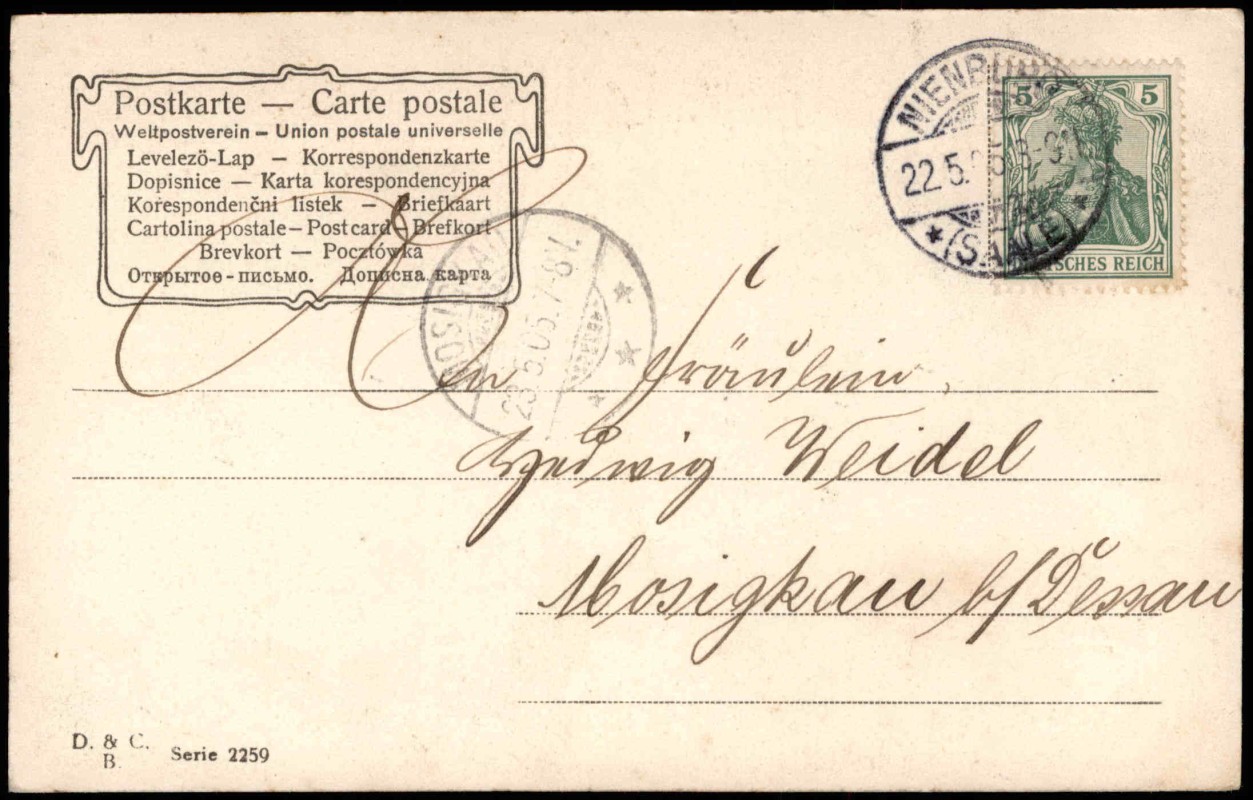 Postkarte — Carte postale
Weltpostverein – Union postale universelle
Levelezö-Lap — Korrespondenzkarte
Dopisnice — Karta korespondencyjna
Korespondenčni listek — Briefkaart
Cartolina postale – Post card – Brefkort
Brevkort — Pocztówka
Открытое-письмо. Дописна карта
NIENBURG
22.5.
* (SAALE) *
5 5
SCHES REICH
MOSIGKAU
23.5.05.7-8V.
An Fräulein
Hedwig Weidel
Mosigkau b/Dessau
D. & C.
B.
Serie 2259